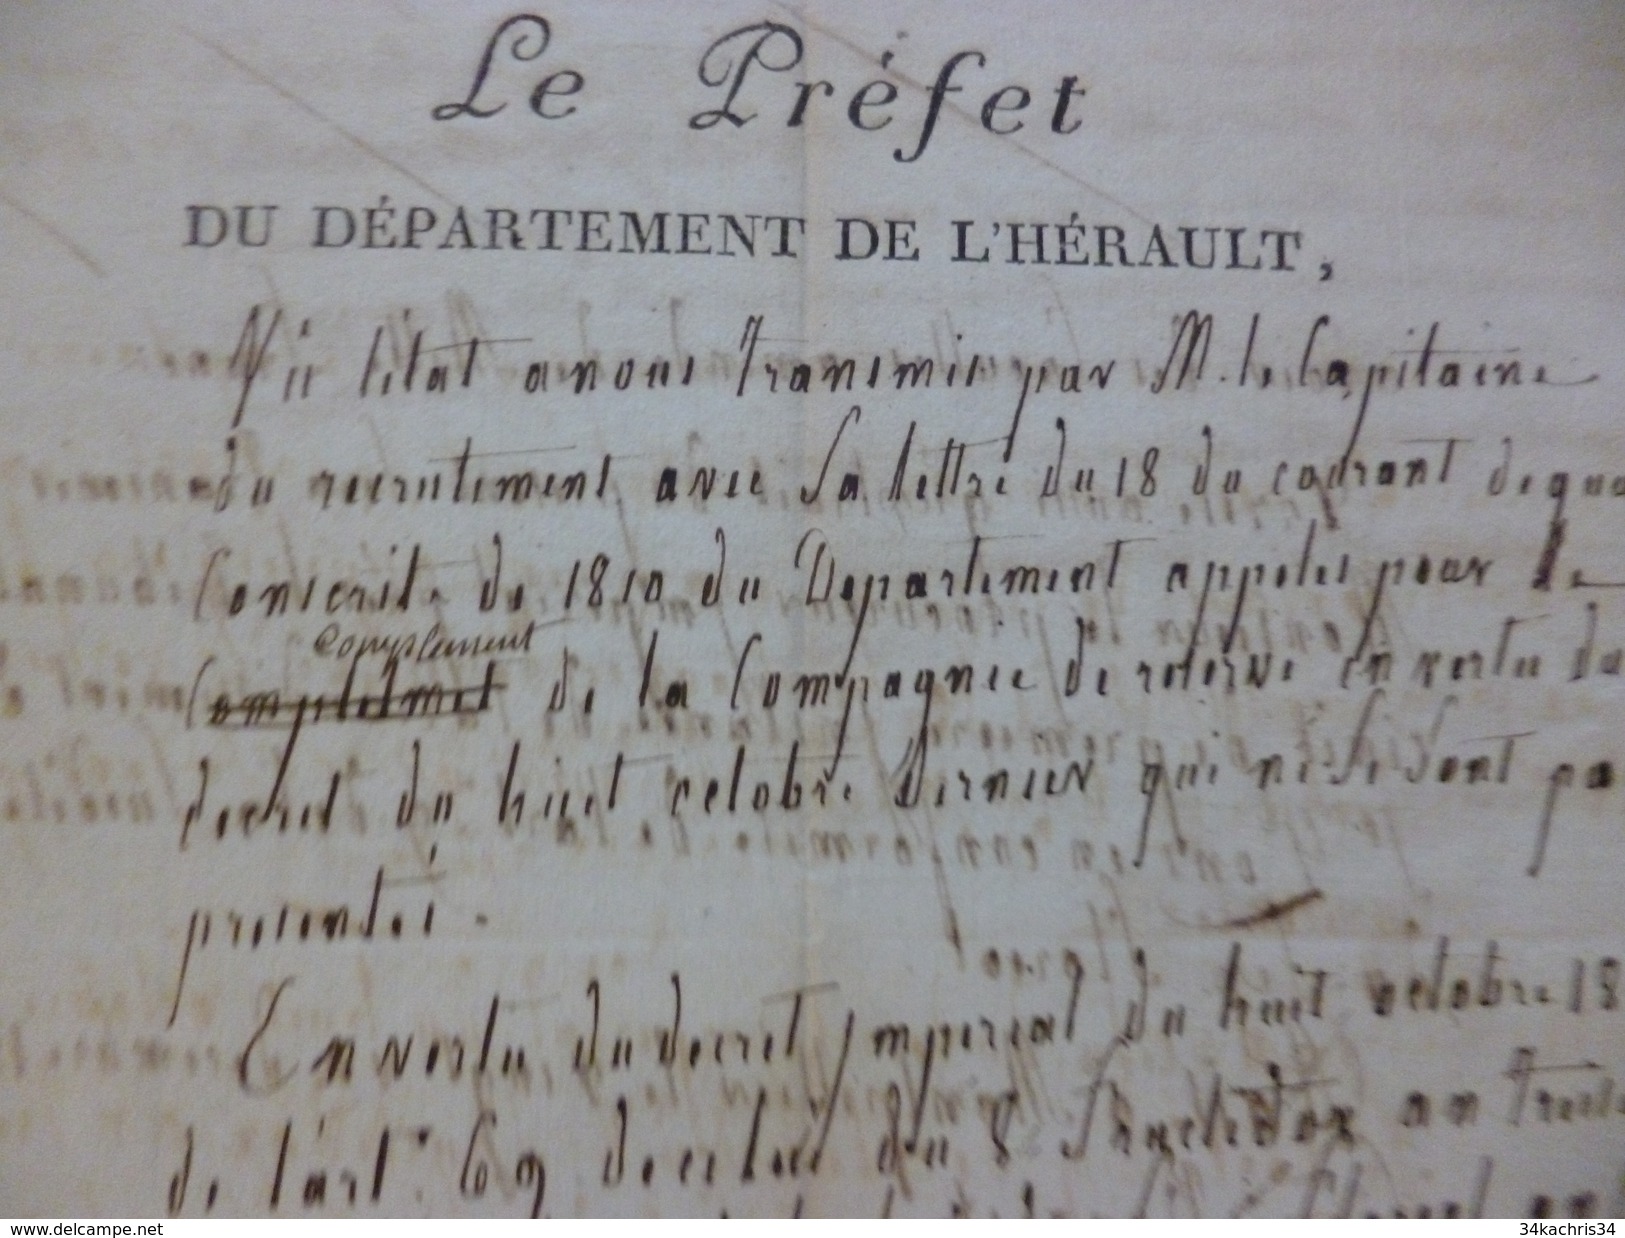 Le Préfet
DU DÉPARTEMENT DE L'HÉRAULT,
Vu létat a nous transmis par M. le Capitaine
du recrutement avec sa lettre du 18 du courant de qua
Conscrits de 1810 du Departement appelés pour le
Complement
de la Compagnie de reserve en vertu du
decret du huit octobre dernier qui ne se sont pa
presentés.
En vertu du decret imperial du huit octobre 18
de l'art. 69 de celui du 8 fructidor an treize
www.delcampe.net
34kachris34